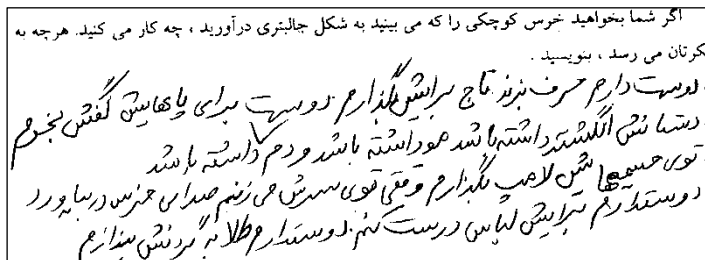 اگر شما بخواهید خرس کوچکی را که می بینید به شکل جالبتری درآورید ، چه کار می کنید. هرچه به
فکرتان می رسد ، بنویسید .
دوست دارم حرف بزند تاج برایش بگذارم دوست برای پاهایش کفش بخرم
دستانش انگشتر داشته باشد مو داشته باشد و دم داشته باشد
توی جیبهاش لامپ بگذارم وقتی توی سرش می زنم صدای خرس دربیاورد
دوستدارم برایش لباس درست کنم دوستدارم طلا به گردنش بیندازم